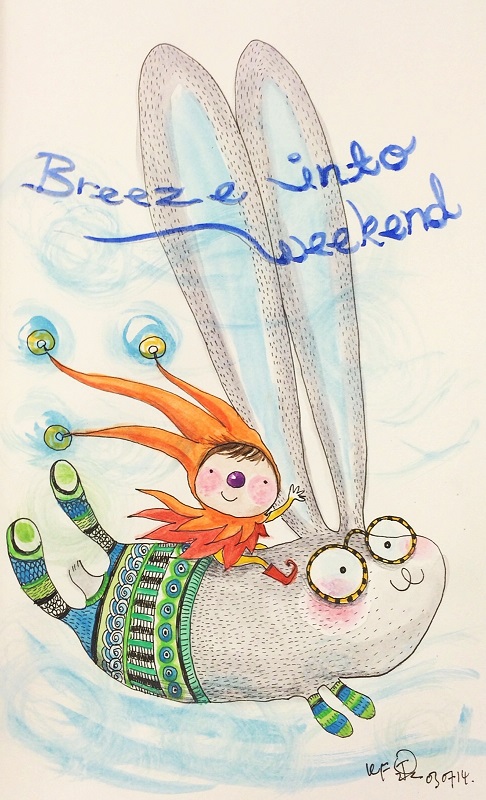 Breeze into
weekend
03.07.14.